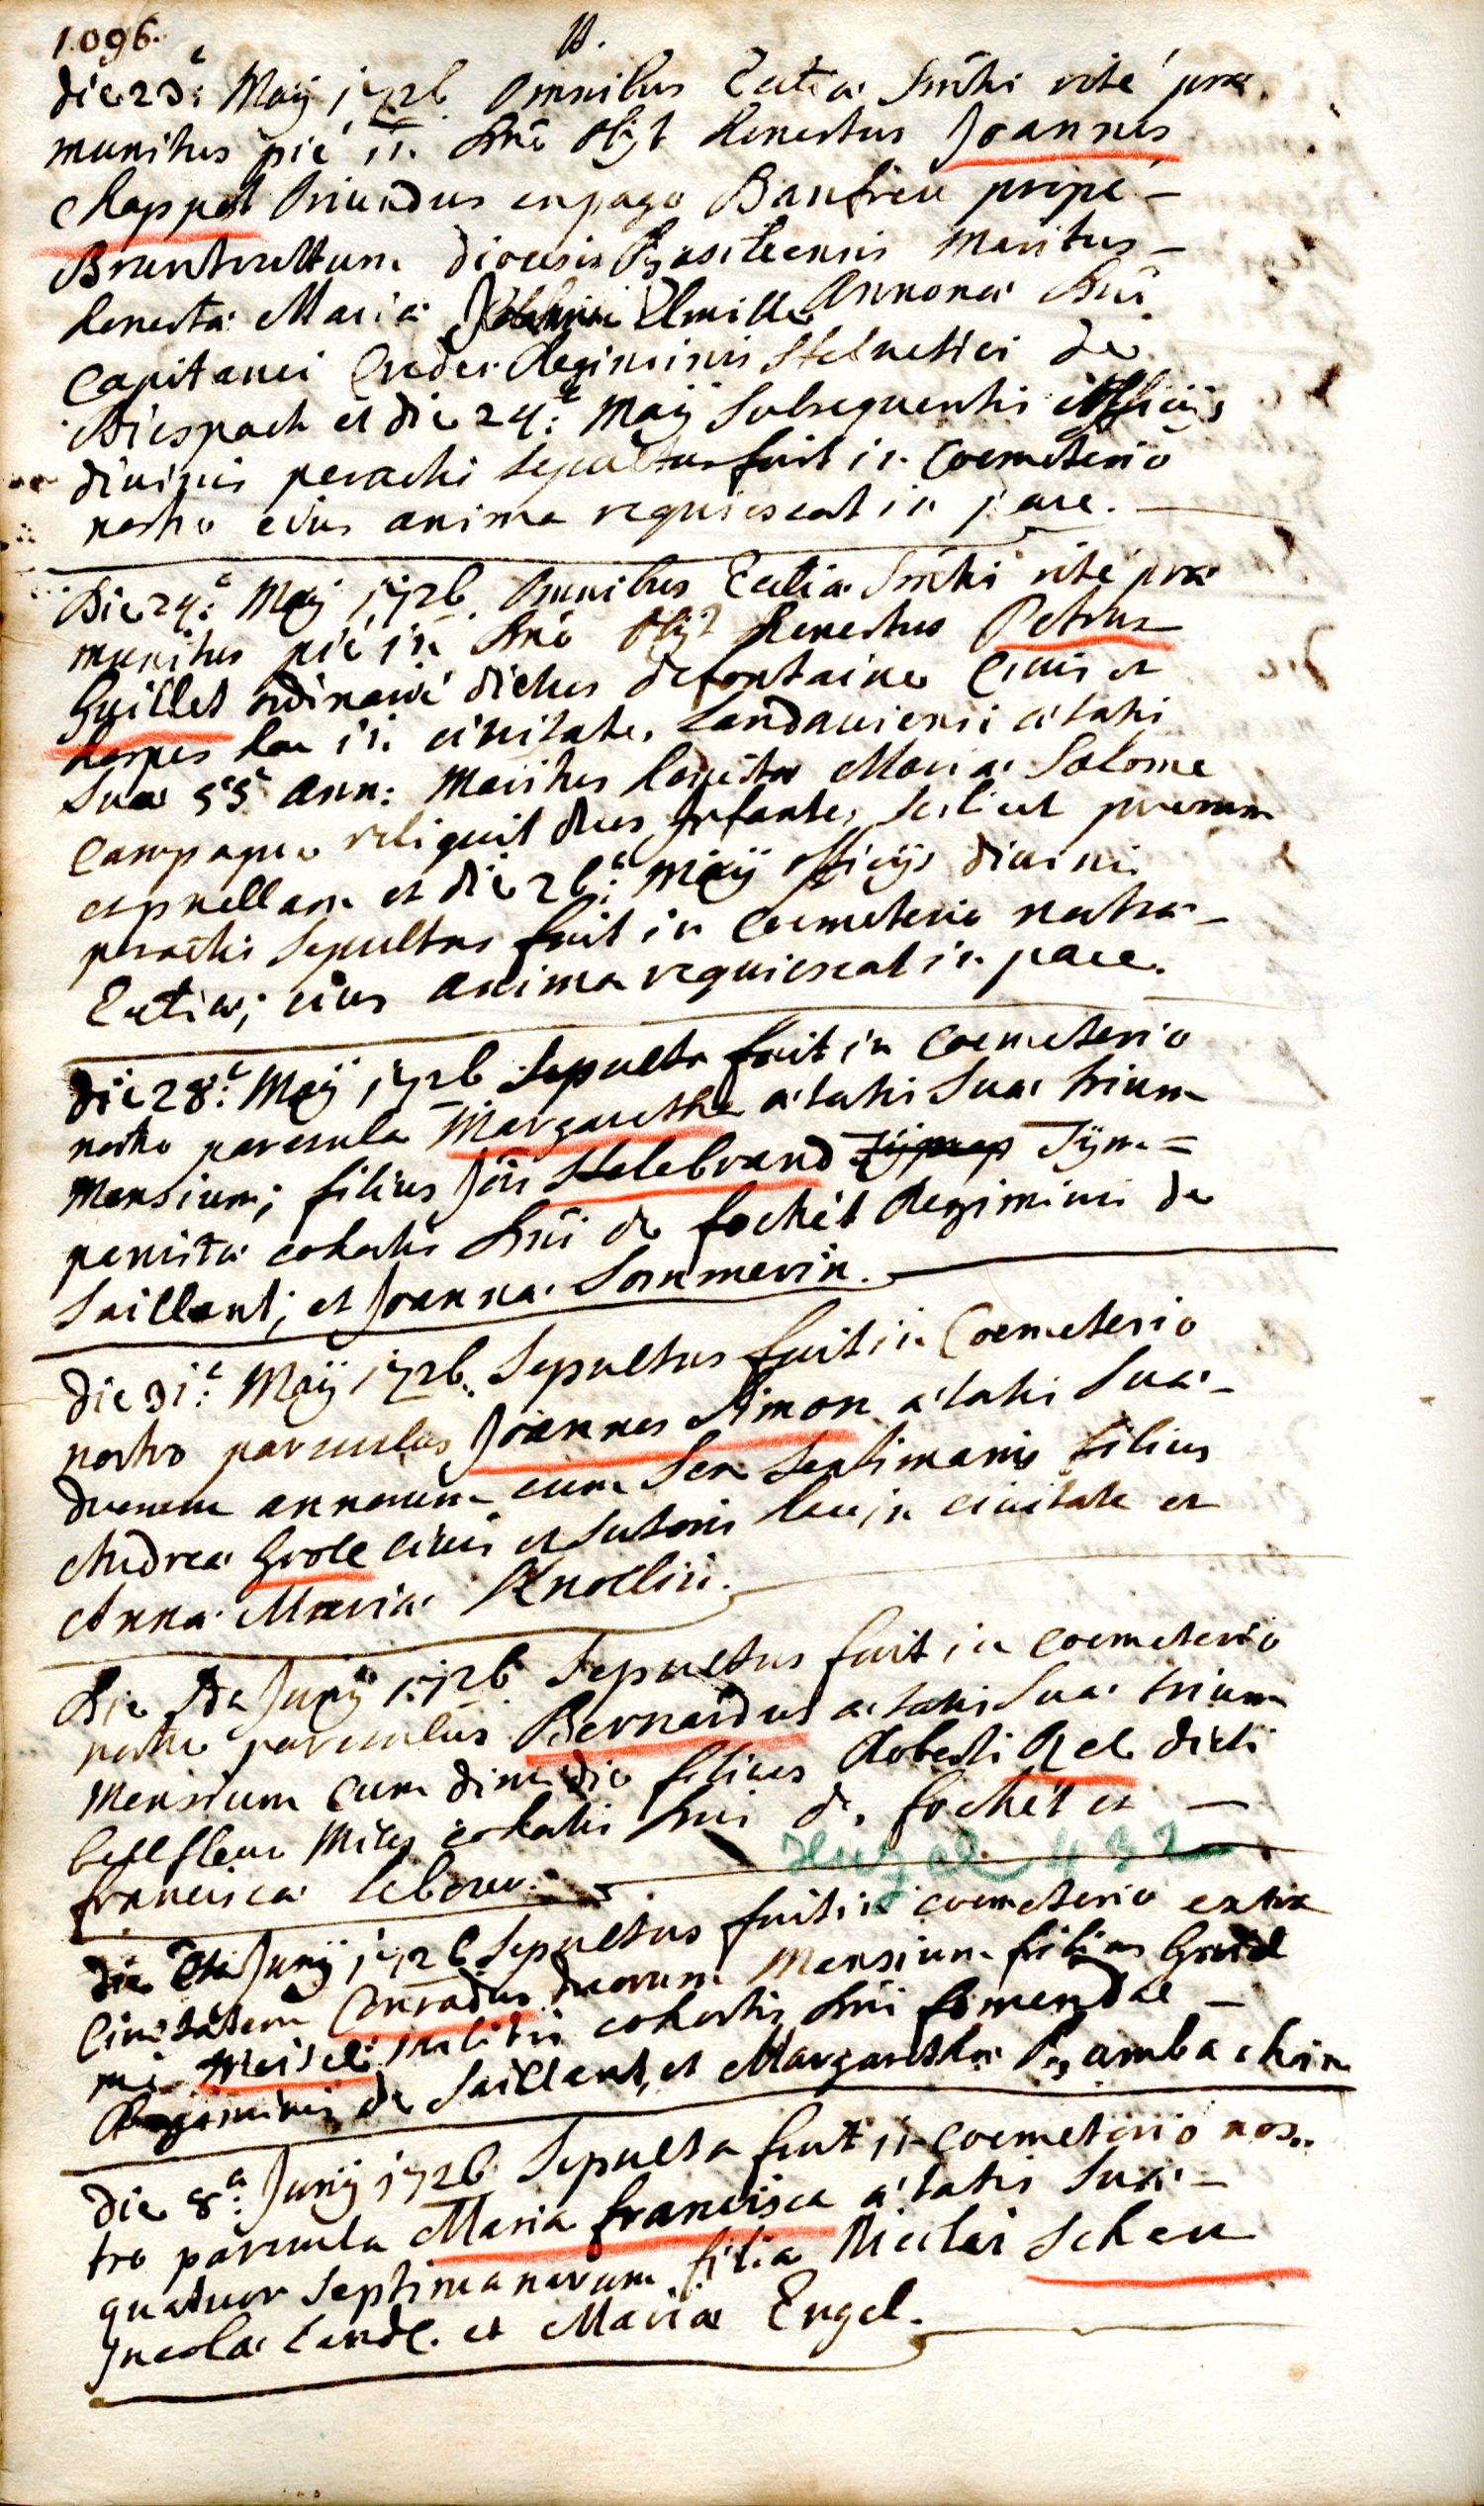 1.096. 11.
die 23.a Maij 1726. Omnibus Eccliæ Smtis rité præ
munitus pié in Dno Obijt Honestus Joannes
Chappat Oriundus ex pago Banfreu propé
Bruntruttum diocesis Basileensis Maritus
Honestæ Mariæ Annonæ Dni
Capitanei Regiminis Helvetici de
Diespach et die 24.a Maij Subsequentis officijs
divinis peractis Sepultus fuit in Coemeterio
nostro eius anima requiescat in pace.
Die 24.a Maij 1726. Omnibus Eccliæ Smtis rité præ
munitus pié in Dno Obijt Honestus Petrus
Guillet ordinarié dictus defontaine Civis et
hospes hac in civitate Landaviensi ætatis
Suæ 55 Ann: Maritus Honestæ Mariæ Salome
Campagne reliquit duos Infantes, scilicet puerum
et puellam et die 26.a Maij officijs divinis
peractis Sepultus fuit in Coemeterio nostræ
Eccliæ; eius anima requiescat in pace.
die 28.a Maij 1726 Sepulta fuit in Coemeterio
nostro parvula Margaretha ætatis Suæ trium
Mensium; filius Jois Helebrand Tym=
panistæ cohortis Dni de fochét Regiminis de
Saillant; et Joannæ Sommerin.
die 31.a Maij 1726. Sepultus fuit in Coemeterio
nostro parvulus Joannes Simon ætatis Suæ
duorum annorum cum Sex Septimanis filius
Andreæ Grole civis et Sutoris hac in civitate et
Annæ Mariæ Knollin.
Die Junij 1726 Sepultus fuit in Coemeterio
nostro parvulus Bernardus ætatis Suæ trium
Mensium cum dimidio filius Roberti Rel dicti
bellfleur Militis cohortis Dni de fochét et
franciscæ lebour.
432
die Junij 1726 Sepultus fuit in coemeterio extra
Civitatem Conradus duorum Mensium filius
Meisel militis cohortis Dni
Regiminis de Saillant, et Margarethæ Bambachin
Die 8.a Junij 1726 Sepulta fuit in Coemeterio nos=
tro parvula Maria francisca ætatis Suæ
quatuor Septimanarum filia Nicolai Scheu
Incolæ Land. et Mariæ Engel.